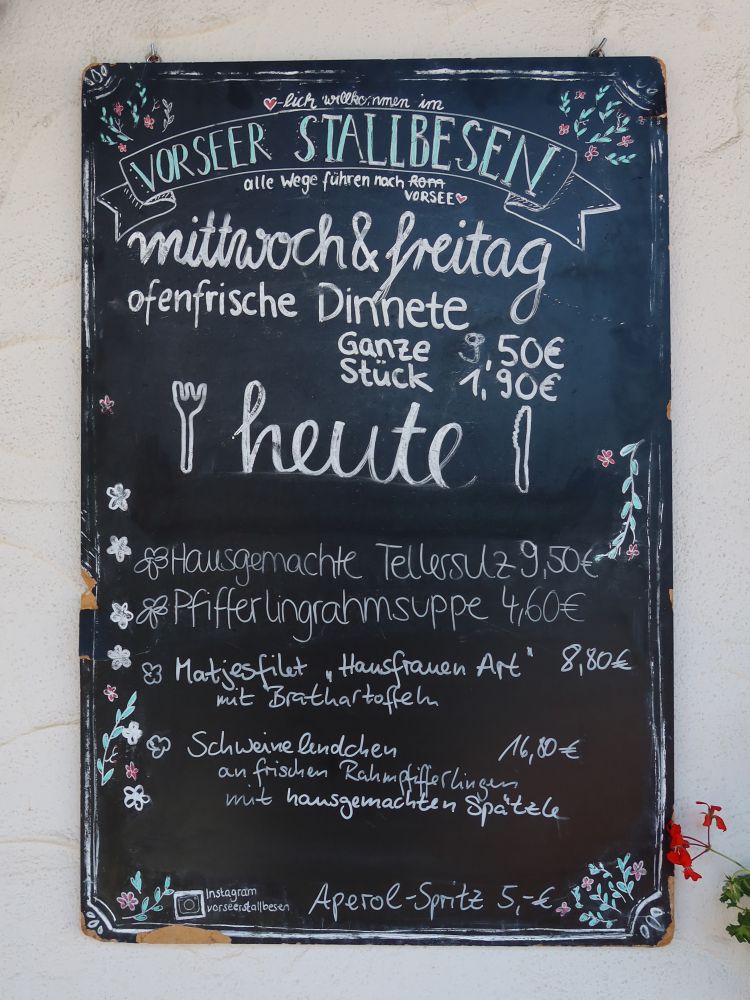 -lich willkommen im
VORSEER STALLBESEN
alle Wege führen nach Rom
VORSEE
mittwoch & freitag
ofenfrische Dinnete
Ganze 9,50€
Stück 1,90€
heute
Hausgemachte Tellersulz 9,50€
Pfifferlingrahmsuppe 4,60€
Matjesfilet „Hausfrauen Art" 8,80€
mit Bratkartoffeln
Schweinelendchen 16,80€
an frischen Rahmpfifferlingen
mit hausgemachten Spätzle
Instagram
vorseerstallbesen
Aperol-Spritz 5,-€